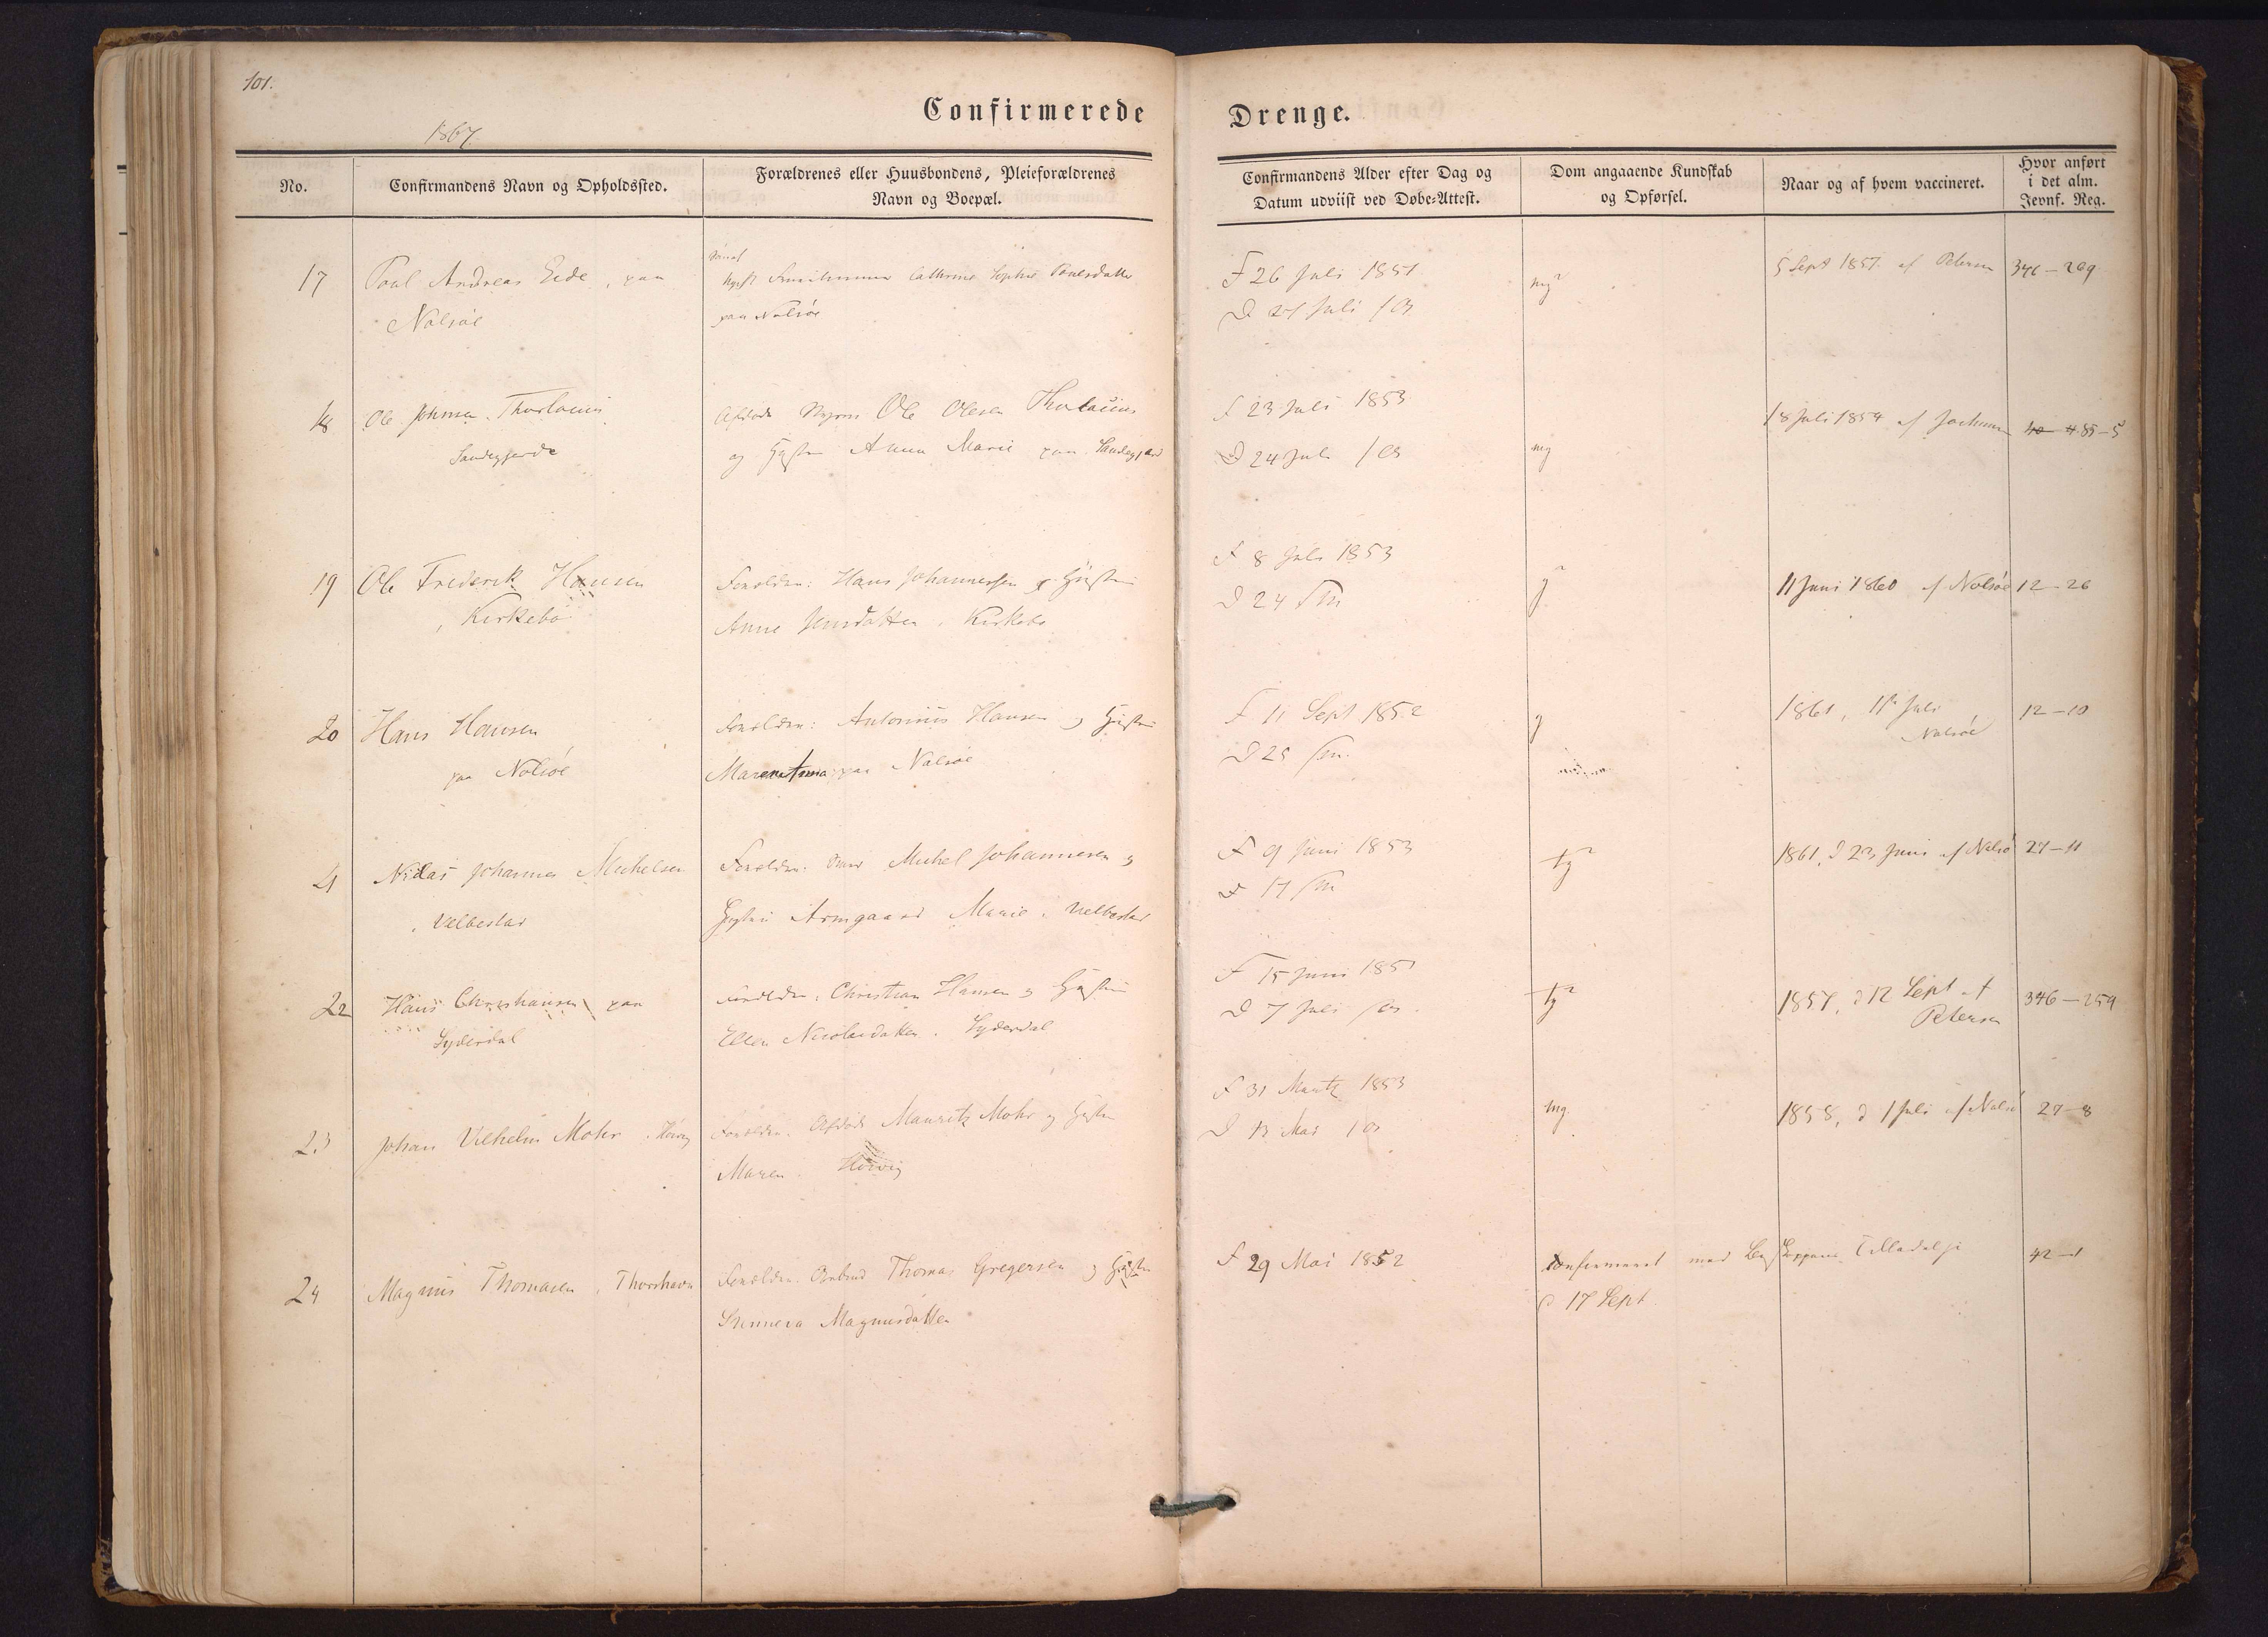 101.
1867.
Confirmerede Drenge.
No.
Confirmandens Navn og Opholdssted.
Forældrenes eller Huusbondens, Pleieforældrenes
Navn og Boepæl.
Confirmandens Alder efter Dag og
Datum udviist ved Døbe-Attest.
Dom angaaende Kundskab
og Opførsel.
Naar og af hvem vaccineret.
Hvor anført
i det alm.
Jevnf. Reg.
17 Poul Andreas Eide, paa
Nolsöe
Cathrine Sophie Poulsdatter
paa Nolsöe
F 26 Juli 1851
D 27 Juli
mg
5 Sept 1857 af Petersen
346-269
18 Ole Johnsen Thorlacius
Sandegjerde
Afdøde Ole Olesen Thorlacius
og Anna Marie paa Sandegjerd
F 23 Juli 1853
D 24 Juli
mg
18 Juli 1854 af
85-5
19 Ole Frederik Hansen
Kirkebö
Forældre: Hans Johannessen og Hustru
Anne Jensdatter, Kirkebö
F 8 Juli 1853
D 24
g
11 Juni 1860 af Nolsöe
12-26
20 Hans Hansen
paa Nolsöe
Forældre: Antonius Hansen og Hustru
Maren Anna paa Nolsöe
F 11 Sept 1852
D 25
g
1861, 11 Juli
Nolsöe
12-10
21 Niclas Johannes Michelsen
Velbestad
Forældre: Michel Johannesen og
Hustru Armgaard Marie, Velbestad
F 9 Juni 1853
D 17
tg
1861, d 23 Juni af Nolsö
27-11
22 Hans Chr. Hansen paa
Syderdal
Forældre: Christian Hansen og Hustru
Ellen Nicolaidatter, Syderdal
F 15 Juni 1851
D 7 Juli
tg
1857, d 12 Sept af
Petersen
346-259
23 Johan Vilhelm Mohr, Hoivig
Forældre: Afdøde Mauritz Mohr og Hustru
Maren, Hoivig
F 31 Martz 1853
D 13 Mai
mg.
1858, d 1 Juli af Nolsö
27-8
24 Magnus Thomasen, Thorshavn
Forældre: Thomas Gregersen og Hustru
Sunneva Magnusdatter
F 29 Mai 1852
Confirmeret med Bispens Tilladelse
d 17 Sept.
42-1